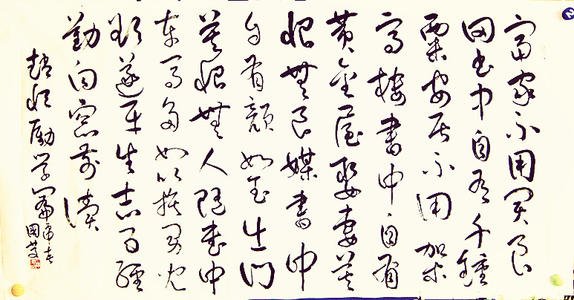 富家不用买良
田书中自有千鍾
粟安居不用架
高楼書中自有
黄金屋娶妻莫
恨無良媒書中
自有颜如玉出门
莫恨無人随书中
车马多如簇男儿
欲遂平生志五经
勤向窗前读
趙恒励学篇